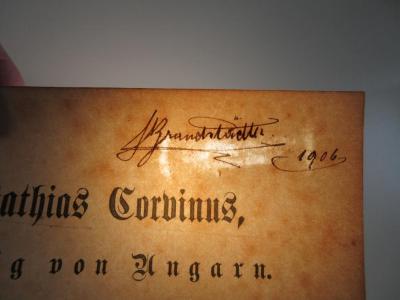 Brandstädter
1906
athias Corvinus,
ig von Ungarn.